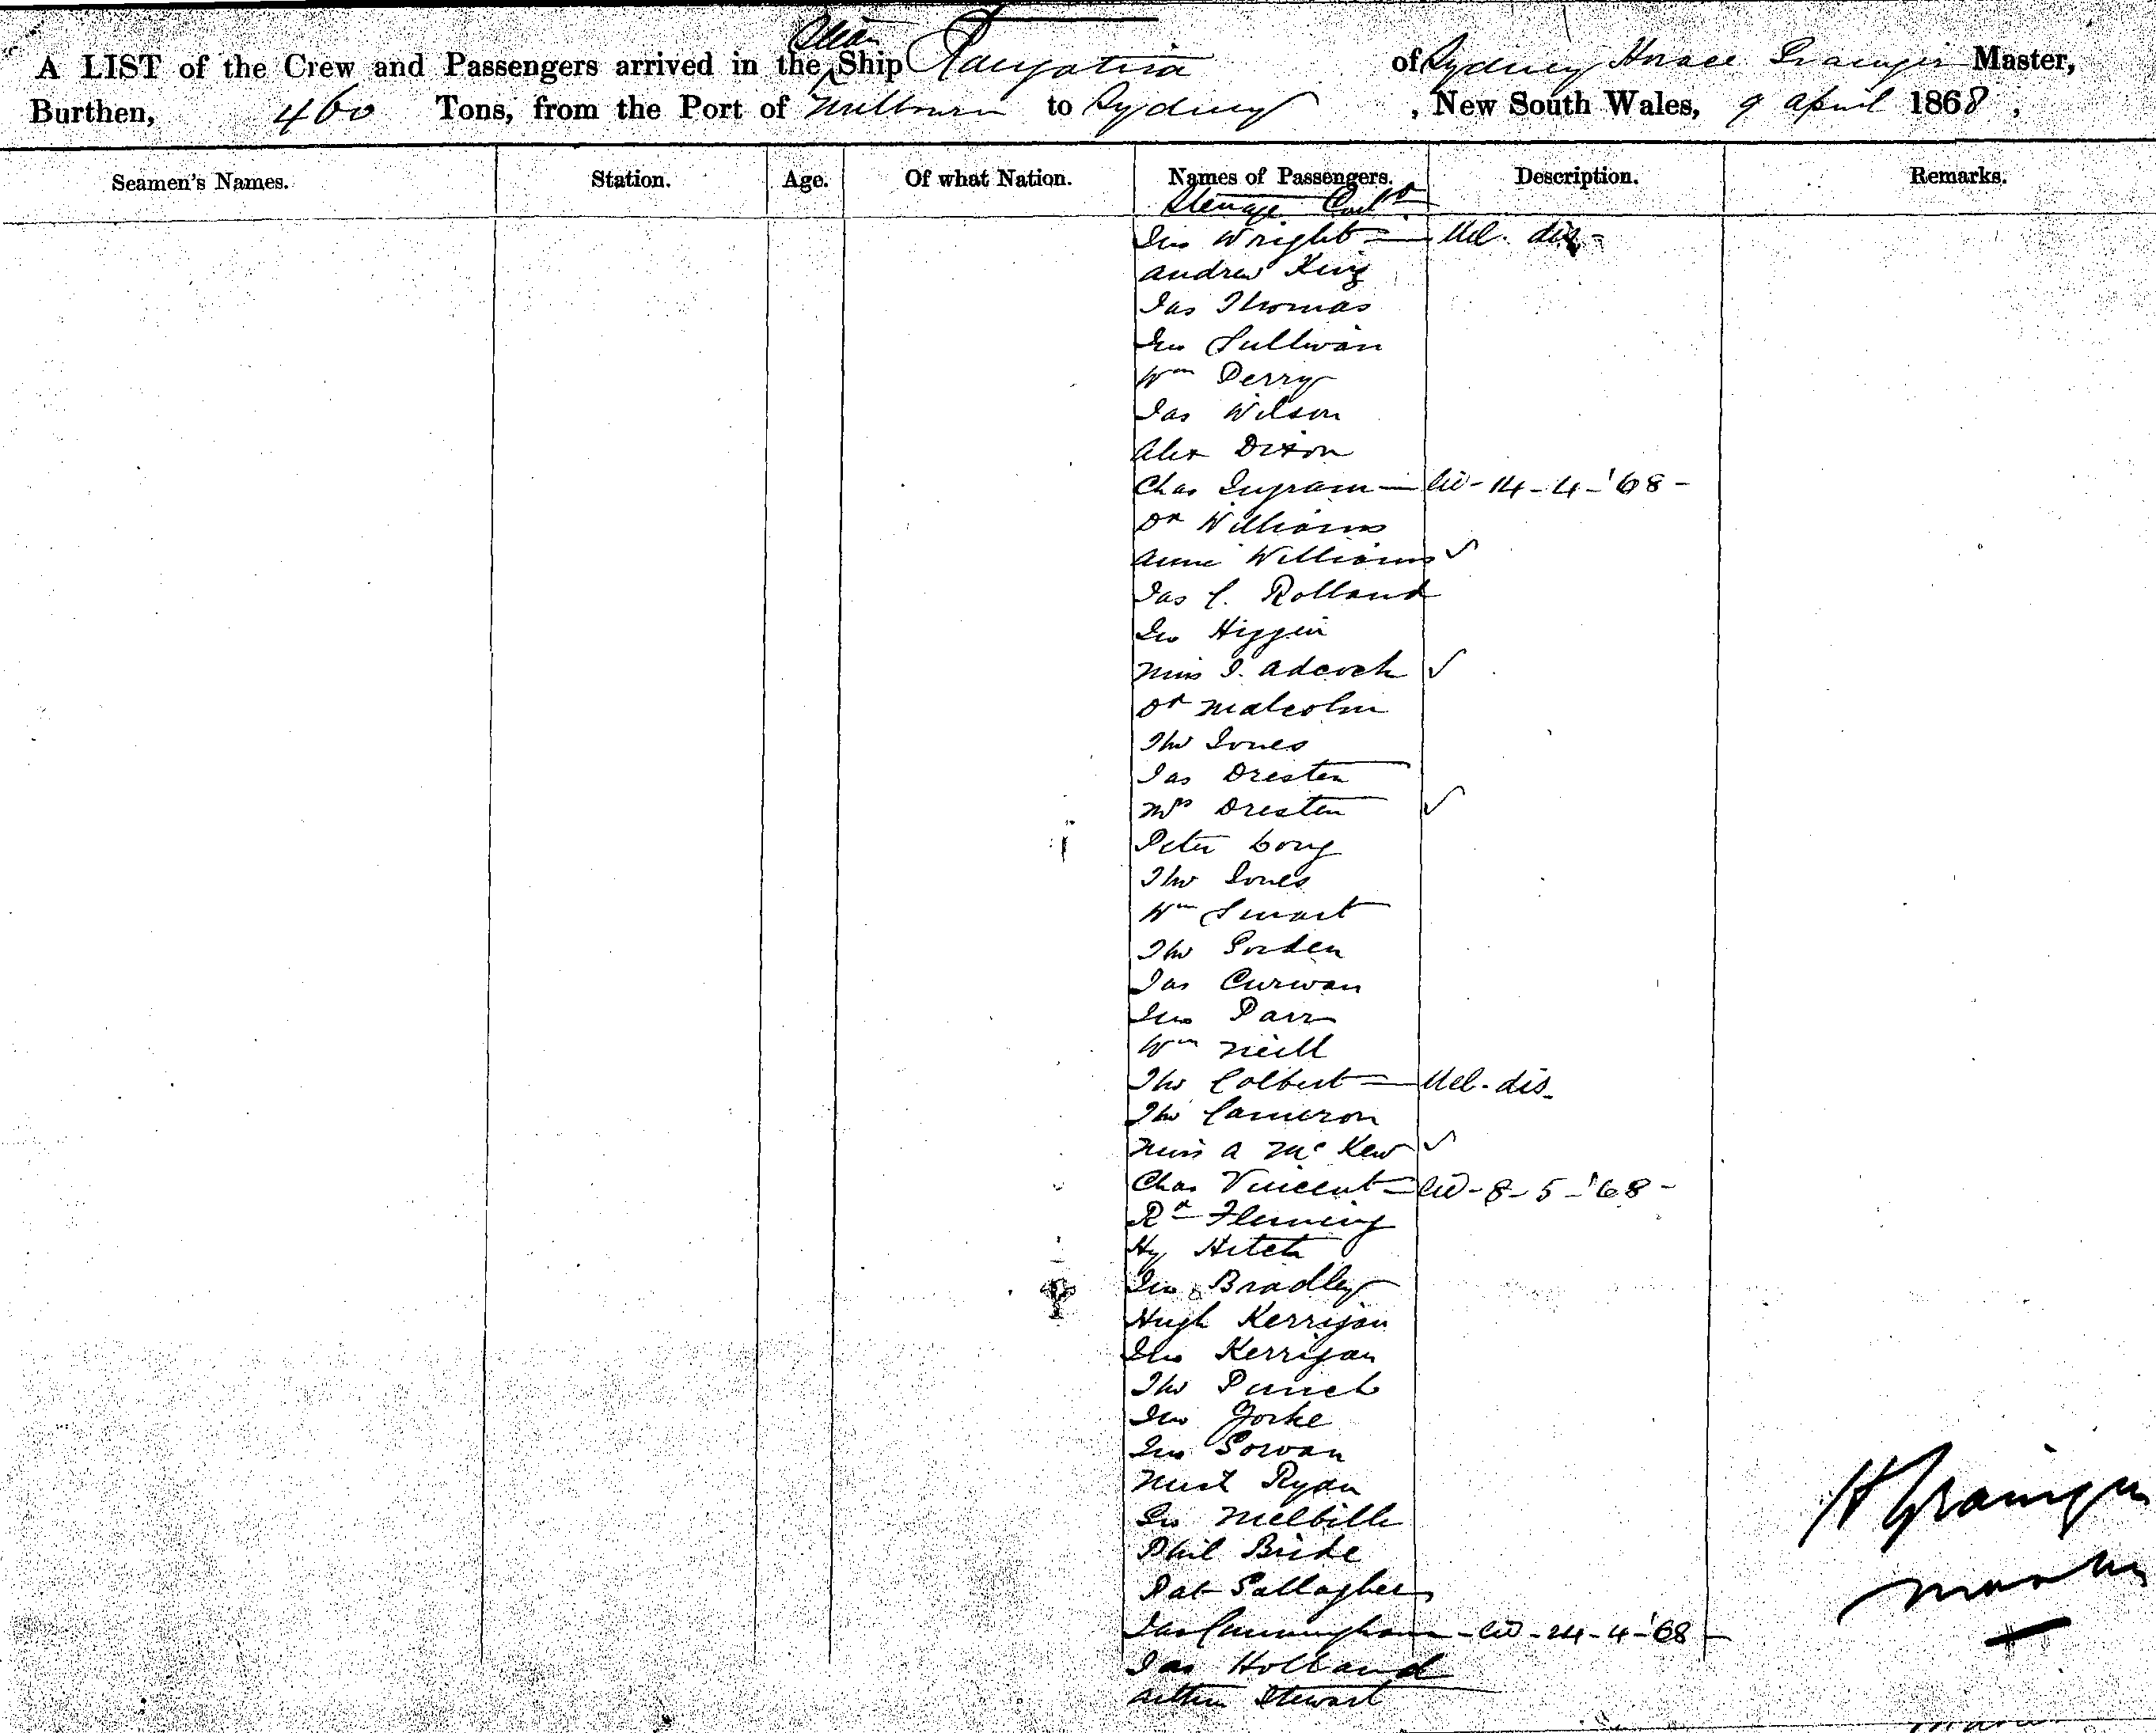 A LIST of the Crew and Passengers arrived in the Steam Ship Rangatira of Sydney Horace Grainger Master,
Burthen, 460 Tons, from the Port of Melbourn to Sydney, New South Wales, 9 April 1868,
Seamen's Names. Station. Age. Of what Nation. Names of Passengers. Description. Remarks.
Steerage Contd
Jno Wright
Andrew King
Jas Thomas
Jno Sullivan
Wm Perry
Jas Wilson
Alex Dixon
Chas Ingram - 14-4-'68-
Dr Williams
Annie Williams ✓
Jas C. Rolland
Geo Higgin
Miss I. Adcock ✓
Dr Malcolm
Tho Jones
Jas Dresten
Mrs Dresten ✓
Peter Long
Tho Jones
Wm Smart
Tho Gorden
Jas Curwan
Jno Parr
Wm Neill
Tho Colbert
Tho Cameron
Miss A McKew ✓
Chas Vincent - 8-5-'68-
Rt Fleming
Hy Hitch
Jno Bradley
Hugh Kerrigan
Jno Kerrigan
Tho Punch
Jno Yorke
Jno Gowan
Ryan
Geo Melbille
Phil Bride
Pat Gallagher
Jas Cunningham - 24-4-'68-
Jas Holland
Arthur Stewart
H Grainger
Master